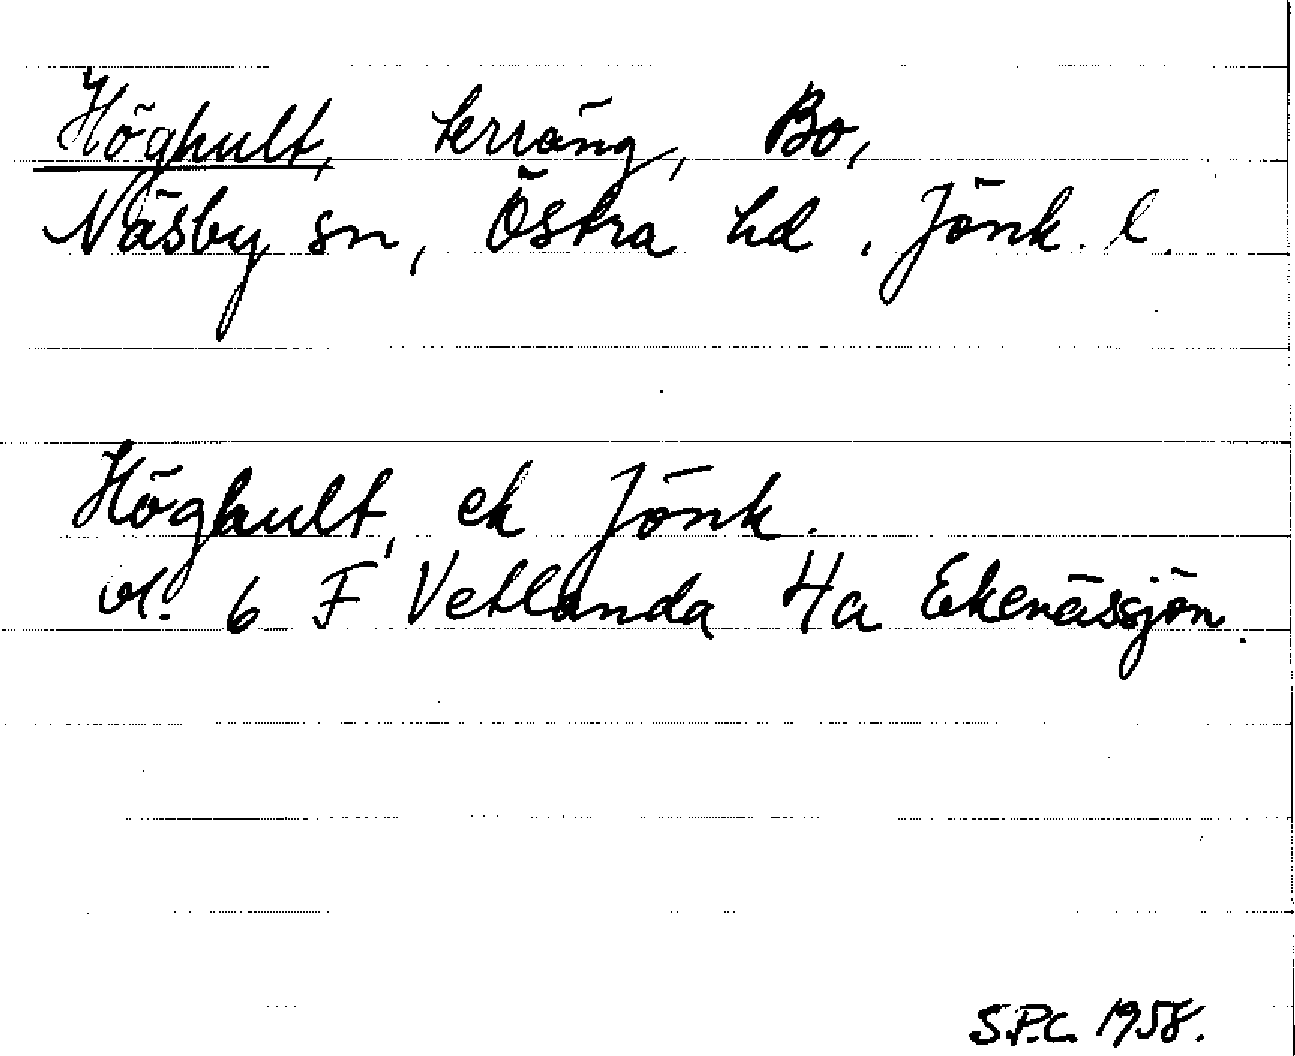 Höghult, terräng, Bo,
Näsby sn, Östra hd. Jönk. l.
Höghult, ek Jönk.
bl. 6 F Vetlanda 4a Ekenässjön.
S.P.C. 1958.